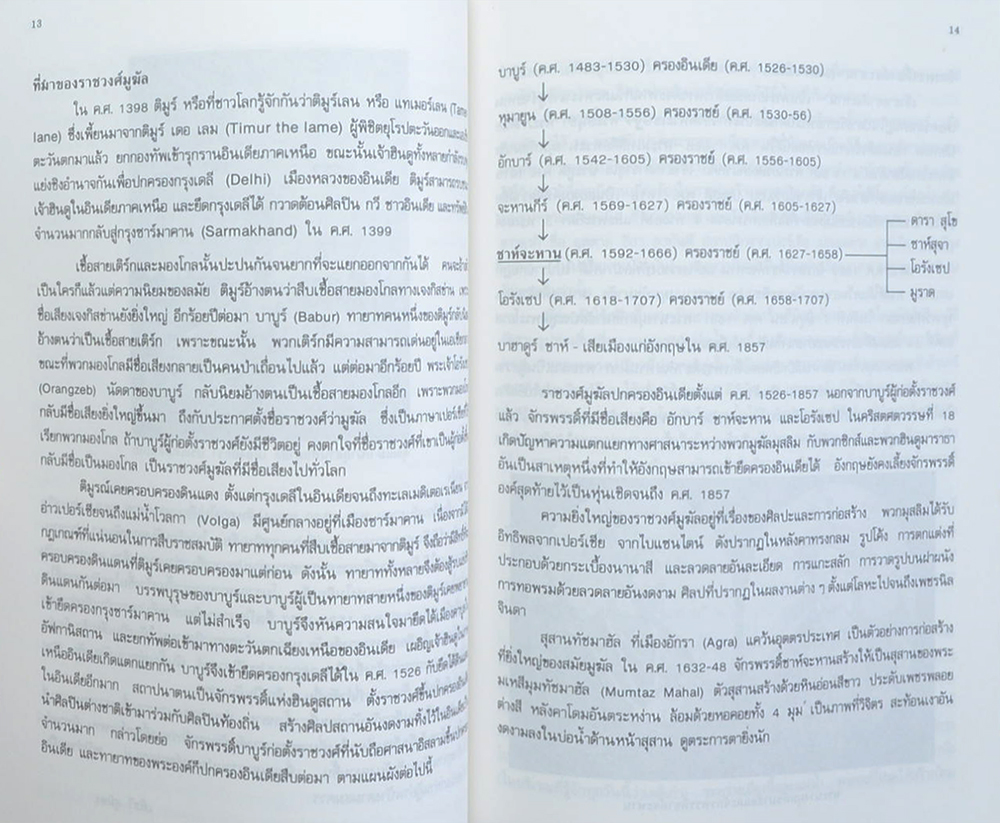 13
ที่มาของราชวงศ์มูฆัล
ใน ค.ศ. 1398 ติมูร์ หรือที่ชาวโลกรู้จักกันว่าติมูร์เลน หรือ แทเมอร์เลน (Tame
lane) ซึ่งเพี้ยนมาจากติมูร์ เดอ เลม (Timur the lame) ผู้พิชิตยุโรปตะวันออกและ
ตะวันตกมาแล้ว ยกกองทัพเข้ารุกรานอินเดียภาคเหนือ ขณะนั้นเจ้าฮินดูทั้งหลายกำลัง
แย่งชิงอำนาจกันเพื่อปกครองกรุงเดลี (Delhi) เมืองหลวงของอินเดีย ติมูร์สามารถ
เจ้าฮินดูในอินเดียภาคเหนือ และยึดกรุงเดลีได้ กวาดต้อนศิลปิน กวี ชาวอินเดีย และ
จำนวนมากกลับสู่กรุงซาร์มาคาน (Sarmakhand) ใน ค.ศ. 1399
เชื้อสายเติร์กและมองโกลนั้นปะปนกันจนยากที่จะแยกออกจากกันได้
เป็นใครก็แล้วแต่ความนิยมของสมัย ติมูร์อ้างตนว่าสืบเชื้อสายมองโกลทางเจงกิสข่าน
ชื่อเสียงเจงกิสข่านยังยิ่งใหญ่ อีกร้อยปีต่อมา บาบูร์ (Babur) ทายาทคนหนึ่งของติมูร์
อ้างตนว่าเป็นเชื้อสายเติร์ก เพราะขณะนั้น พวกเติร์กมีความสามารถเด่นอยู่ใน
ขณะที่พวกมองโกลมีชื่อเสียงกลายเป็นคนป่าเถื่อนไปแล้ว แต่ต่อมาอีกร้อยปี พระเจ้า
(Orangzeb) นัดดาของบาบูร์ กลับนิยมอ้างตนเป็นเชื้อสายมองโกลอีก เพราะ
กลับมีชื่อเสียงยิ่งใหญ่ขึ้นมา ถึงกับประกาศตั้งชื่อราชวงศ์ว่ามูฆัล ซึ่งเป็นภาษาเปอร์เซีย
เรียกพวกมองโกล ถ้าบาบูร์ผู้ก่อตั้งราชวงศ์ยังมีชีวิตอยู่ คงตกใจที่ชื่อราชวงศ์ที่เขาเป็น
กลับมีชื่อเป็นมองโกล เป็นราชวงศ์มูฆัลที่มีชื่อเสียงไปทั่วโลก
ติมูร์เคยครอบครองดินแดง ตั้งแต่กรุงเดลีในอินเดียจนถึงทะเลเมดิเตอเรเนียน
อ่าวเปอร์เซียจนถึงแม่น้ำโวลกา (Volga) มีศูนย์กลางอยู่ที่เมืองซาร์มาคาน
กฎเกณฑ์ที่แน่นอนในการสืบราชสมบัติ ทายาททุกคนที่สืบเชื้อสายมาจากติมูร์
ครอบครองดินแดนที่ติมูร์เคยครอบครองมาแต่ก่อน ดังนั้น ทายาททั้งหลายจึงต้อง
ดินแดนกันต่อมา บรรพบุรุษของบาบูร์และบาบูร์ผู้เป็นทายาทสายหนึ่งของติมูร์
เข้ายึดครองกรุงซาร์มาคาน แต่ไม่สำเร็จ บาบูร์จึงหันความสนใจมายึดได้เมือง
อัฟกานิสถาน และยกทัพต่อเข้ามาทางตะวันตกเฉียงเหนือของอินเดีย เผอิญเจ้าฮินดู
เหนืออินเดียเกิดแตกแยกกัน บาบูร์จึงเข้ายึดครองกรุงเดลีได้ใน ค.ศ. 1526
ในอินเดียอีกมาก สถาปนาตนเป็นจักรพรรดิ์แห่งฮินดูสถาน ตั้งราชวงศ์ขึ้นปกครอง
นำศิลปินต่างชาติเข้ามาร่วมกับศิลปินท้องถิ่น สร้างศิลปสถานอันงดงามทิ้งไว้ใน
จำนวนมาก กล่าวโดยย่อ จักรพรรดิ์บาบูร์ก่อตั้งราชวงศ์ที่นับถือศาสนาอิสลาม
อินเดีย และทายาทของพระองค์ก็ปกครองอินเดียสืบต่อมา ตามแผนผังต่อไปนี้
14
บาบูร์ (ค.ศ. 1483-1530) ครองอินเดีย (ค.ศ. 1526-1530)
หุมายูน (ค.ศ. 1508-1556) ครองราชย์ (ค.ศ. 1530-56)
อักบาร์ (ค.ศ. 1542-1605) ครองราชย์ (ค.ศ. 1556-1605)
จะหานกีร์ (ค.ศ. 1569-1627) ครองราชย์ (ค.ศ. 1605-1627)
ชาห์จะหาน (ค.ศ. 1592-1666) ครองราชย์ (ค.ศ. 1627-1658)
ดารา สุโข
ชาห์สุจา
โอรังเซป
มูราด
โอรังเซป (ค.ศ. 1618-1707) ครองราชย์ (ค.ศ. 1658-1707)
บาฮาดูร์ ชาห์ - เสียเมืองแก่อังกฤษใน ค.ศ. 1857
ราชวงศ์มูฆัลปกครองอินเดียตั้งแต่ ค.ศ. 1526-1857 นอกจากบาบูร์ผู้ก่อตั้งราชวงศ์
แล้ว จักรพรรดิ์ที่มีชื่อเสียงคือ อักบาร์ ชาห์จะหาน และโอรังเซป ในคริสตศตวรรษที่ 18
เกิดปัญหาความแตกแยกทางศาสนาระหว่างพวกมูฆัลมุสลิม กับพวกซิกส์และพวกฮินดูมาราธา
อันเป็นสาเหตุหนึ่งที่ทำให้อังกฤษสามารถเข้ายึดครองอินเดียได้ อังกฤษยังคงเลี้ยงจักรพรรดิ์
องค์สุดท้ายไว้เป็นหุ่นเชิดจนถึง ค.ศ. 1857
ความยิ่งใหญ่ของราชวงศ์มูฆัลอยู่ที่เรื่องของศิลปะและการก่อสร้าง พวกมุสลิมได้รับ
อิทธิพลจากเปอร์เซีย จากไบแซนไตน์ ดังปรากฏในหลังคาทรงกลม รูปโค้ง การตกแต่งที่
ประกอบด้วยกระเบื้องนานาสี และลวดลายอันละเอียด การแกะสลัก การวาดรูปบนฝาผนัง
การทอพรมด้วยลวดลายอันงดงาม ศิลปที่ปรากฏในผลงานต่าง ๆ ตั้งแต่โลหะไปจนถึงเพชรนิล
จินดา
สุสานทัชมาฮัล ที่เมืองอักรา (Agra) แคว้นอุตตรประเทศ เป็นตัวอย่างการก่อสร้าง
ที่ยิ่งใหญ่ของสมัยมูฆัล ใน ค.ศ. 1632-48 จักรพรรดิ์ชาห์จะหานสร้างให้เป็นสุสานของพระ
มเหสีมุมทัชมาฮัล (Mumtaz Mahal) ตัวสุสานสร้างด้วยหินอ่อนสีขาว ประดับเพชรพลอย
ต่างสี หลังคาโดมอันตระหง่าน ล้อมด้วยหอคอยทั้ง 4 มุม เป็นภาพที่วิจิตร สะท้อนเงาอัน
งดงามลงในบ่อน้ำด้านหน้าสุสาน ดูตระการตายิ่งนัก